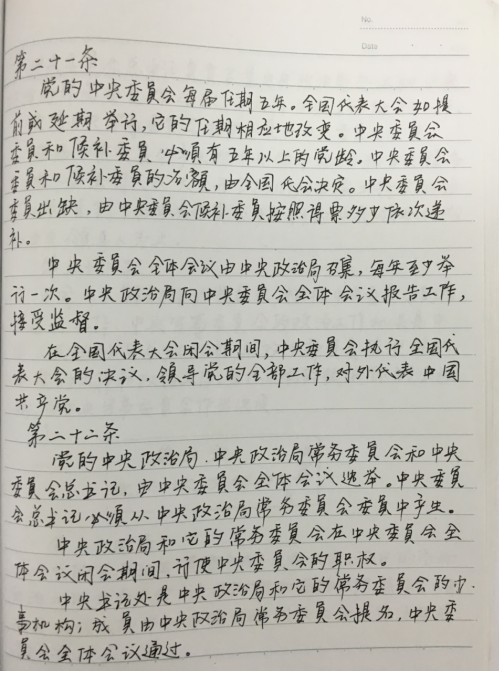 No.
Date
第二十一条
党的中央委员会每届任期五年。全国代表大会如提
前或延期举行,它的任期相应地改变。中央委员会
委员和候补委员必须有五年以上的党龄。中央委员会
委员和候补委员的名额,由全国代会决定。中央委员会
委员出缺,由中央委员会候补委员按照得票多少依次递
补。
中央委员会全体会议由中央政治局召集,每年至少举
行一次。中央政治局向中央委员会全体会议报告工作,
接受监督。
在全国代表大会闭会期间,中央委员会执行全国代
表大会的决议,领导党的全部工作,对外代表中国
共产党。
第二十二条
党的中央政治局、中央政治局常务委员会和中央
委员会总书记,由中央委员会全体会议选举。中央委员
会总书记必须从中央政治局常务委员会委员中产生。
中央政治局和它的常务委员会在中央委员会全
体会议闭会期间,行使中央委员会的职权。
中央书记处是中央政治局和它的常务委员会的办
事机构;成员由中央政治局常务委员会提名,中央委
员会全体会议通过。